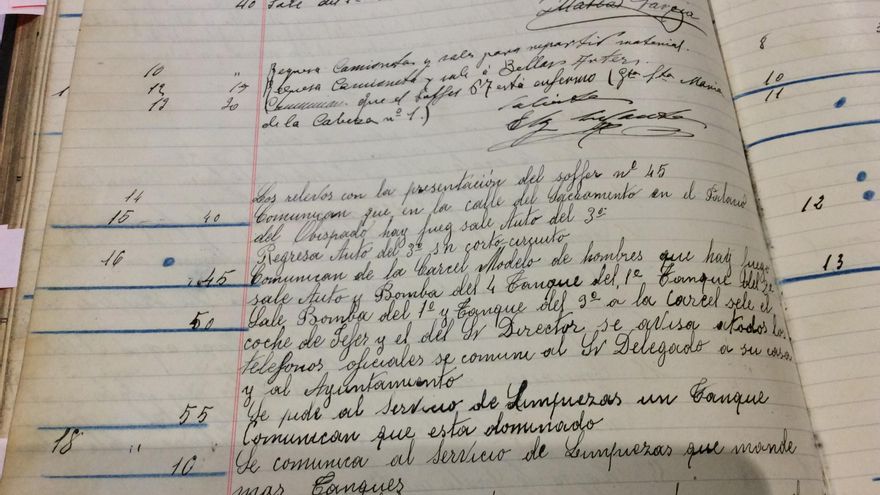 40 Sale del
Maria Garcia
10 " Regresa Camioneta y sale para repartir material.
12 15 Regresa Camioneta y sale á Bellas Artes
13 20 (Comunican que el soffer 57 está enfermo (Gta Sta Maria
de la Cabeza nº 1.)
14 Los relevos con la presentación del soffer nº 45
15 40 Comunican que en la calle del Sacramento en el
del Obispado hay fueg sale Auto del 3º
16 Regresa Auto del 3º sn corto cirquito
45 Comunican de la Carcel Modelo de hombres que hay fuego
sale Auto y Bomba del 4 Tanque del 1º Tanque del 2º
50 Sale Bomba del 1º y Tanque del 9º a la carcel sele el
coche de Jefez y el del Sr Director se avisa atodos los
telefonos oficiales se comuni al Sr Delegado a su casa
y al Ayuntamiento
55 Se pide al servicio de Limpuezas un Tanque
18 " Comunican que esta dominado
10 Se comunica al servicio de Limpuezas que mande
mas Tanquez
8
10
11
12
13
1